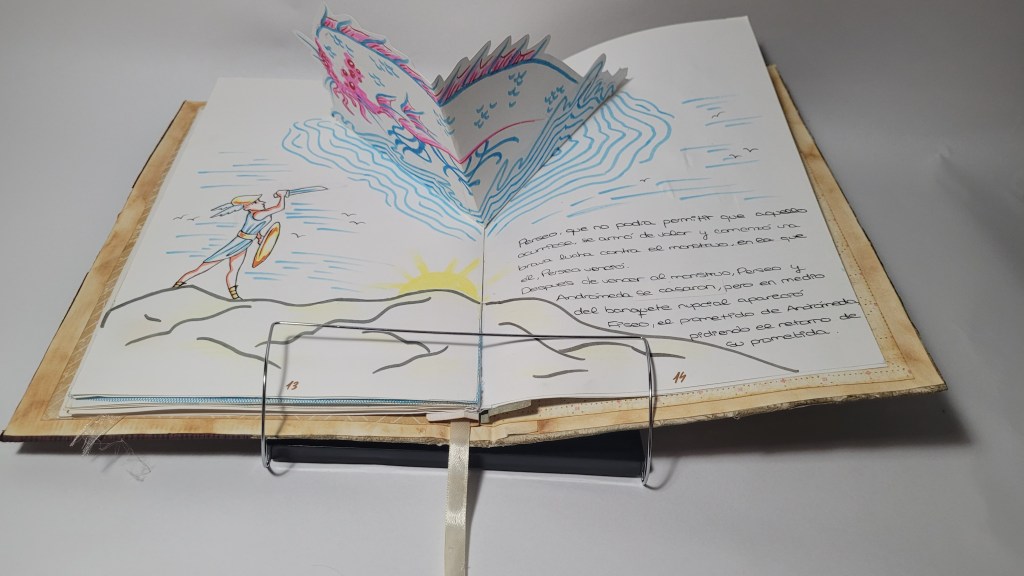 Perseo, que no podía permitir que aquello
ocurriese, se armó de valor y comenzó una
brava lucha contra el monstruo, en la que
el, Perseo venció.
Después de vencer al monstruo, Perseo y
Andrómeda se casaron, pero en medio
del banquete nupcial apareció
Fineo, el prometido de Andrómeda,
pidiendo el retorno de
su prometida.
13
14